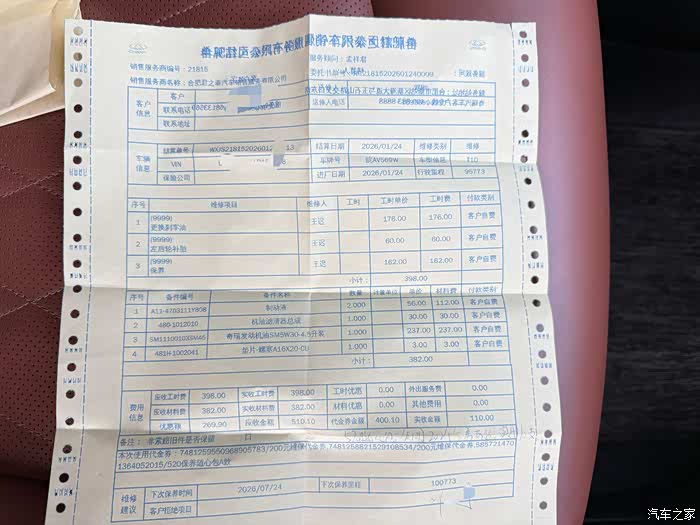 销售服务商编号：21815
服务顾问：孟祥君
销售服务商名称：合肥君之泰汽车销售服务有限公司
客户信息 客户
联系电话
送修人电话
联系地址
车辆信息 结算单号 结算日期 2026/01/24 维修类别 维修
VIN 车牌号 皖AV569W 车型信息 T10
保险公司 进厂日期 2026/01/24 行驶里程 95773
序号 维修项目 维修人 工时 工时单价 工时费 付款类别
1 (9999) 更换刹车油 王迟 176.00 176.00 客户自费
2 (9999) 左后轮补胎 王迟 60.00 60.00 客户自费
3 (9999) 保养 王迟 162.00 162.00 客户自费
小计： 398.00
序号 备件编号 备件名称 数量 计量单位 单价 材料费 付款类别
1 制动液 2.000 56.00 112.00 客户自费
2 480-1012010 机油滤清器总成 1.000 30.00 30.00 客户自费
3 奇瑞发动机油SM5W30-4.5升装 1.000 237.00 237.00 客户自费
4 481H-1002041 垫片-螺塞A16X20-CU 1.000 3.00 3.00 客户自费
小计： 382.00
费用信息 应收工时费 398.00 实收工时费 398.00 工时优惠 0.00 外出服务费 0.00
应收材料费 382.00 实收材料费 382.00 材料优惠 0.00 其他费用 0.00
优惠额 269.90 应收金额 510.10 代金券金额 400.10 实收金额 110.00
备注： 非索赔旧件是否保留 口
本次使用代金券：7481259550968905783/200元维保代金券,7481258821529108534/200元维保代金券,585721470
1364052015/520保养随心包A款
维修建议 下次保养时间 2026/07/24 下次保养里程 100773
客户拒绝项目
汽车之家